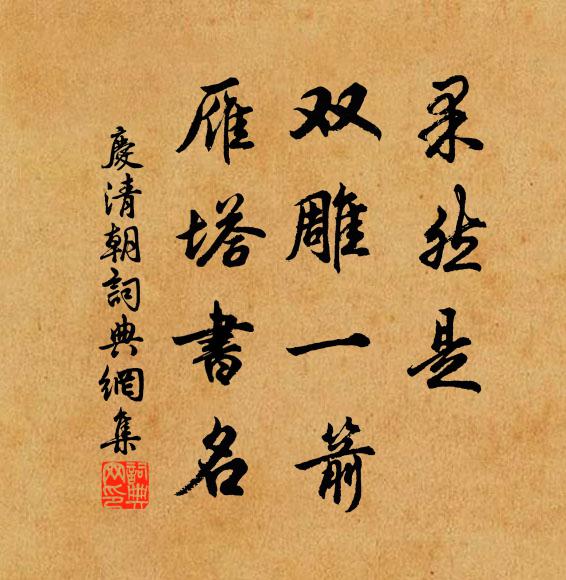 果然是
双雕一箭
雁塔書名
慶清朝詞典網集
詞典网印